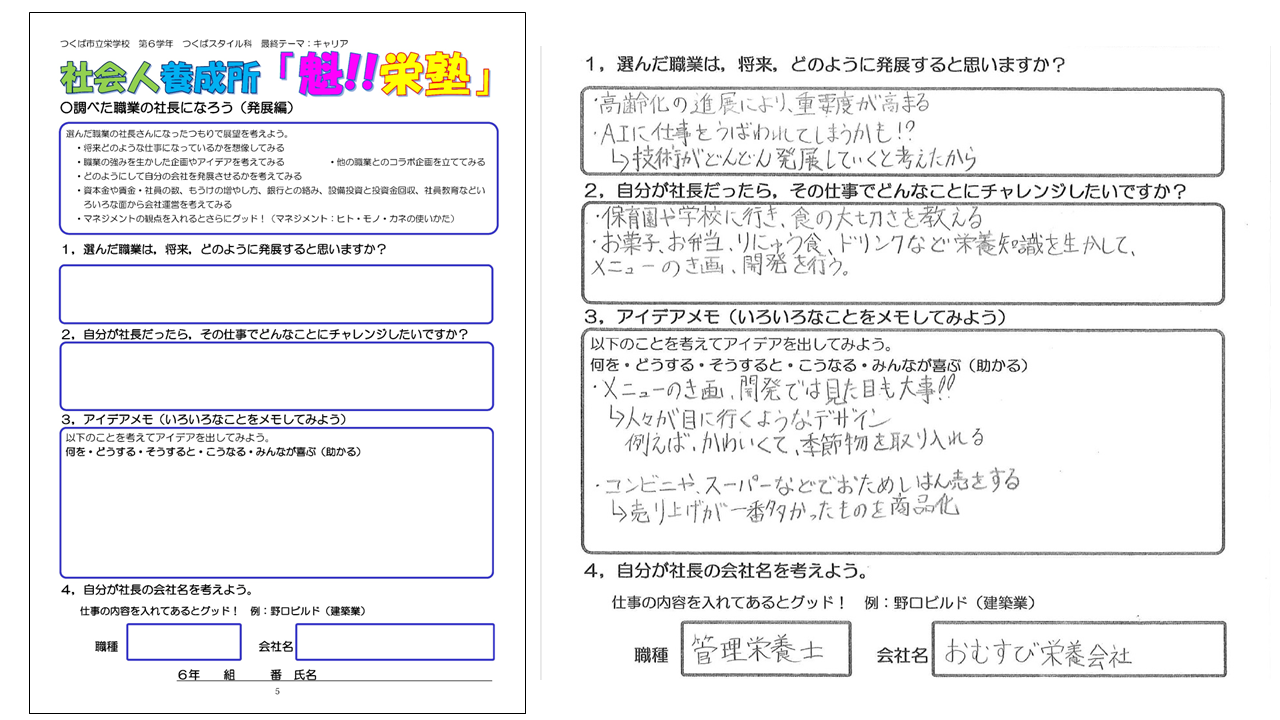 つくば市立栄学校 第6学年 つくばスタイル科 最終テーマ：キャリア
社会人養成所「魁!!栄塾」
〇調べた職業の社長になろう（発展編）
選んだ職業の社長さんになったつもりで展望を考えよう。
・将来どのような仕事になっているかを想像してみる
・職業の強みを生かした企画やアイデアを考えてみる ・他の職業とのコラボ企画を立ててみる
・どのようにして自分の会社を発展させるかを考えてみる
・資本金や賃金・社員の数、もうけの増やし方、銀行との絡み、設備投資と投資金回収、社員教育などい
ろいろな面から会社運営を考えてみる
・マネジメントの観点を入れるとさらにグッド！（マネジメント：ヒト・モノ・カネの使いかた）
1，選んだ職業は，将来，どのように発展すると思いますか？
2，自分が社長だったら，その仕事でどんなことにチャレンジしたいですか？
3，アイデアメモ（いろいろなことをメモしてみよう）
以下のことを考えてアイデアを出してみよう。
何を・どうする・そうすると・こうなる・みんなが喜ぶ（助かる）
4，自分が社長の会社名を考えよう。
仕事の内容を入れてあるとグッド！ 例：野口ビルド（建築業）
職種 会社名
6年 組 番 氏名
5
1，選んだ職業は，将来，どのように発展すると思いますか？
・高齢化の進展により、重要度が高まる
・AIに仕事をうばわれてしまうかも!?
↳技術がどんどん発展していくと考えたから
2，自分が社長だったら，その仕事でどんなことにチャレンジしたいですか？
・保育園や学校に行き、食の大切さを教える
・お菓子、お弁当、りにゅう食、ドリンクなど栄養知識を生かして、
メニューのき画、開発を行う。
3，アイデアメモ（いろいろなことをメモしてみよう）
以下のことを考えてアイデアを出してみよう。
何を・どうする・そうすると・こうなる・みんなが喜ぶ（助かる）
・メニューのき画、開発では見た目も大事!!
↳人々が目に行くようなデザイン
例えば、かわいくて、季節物を取り入れる
・コンビニや、スーパーなどでおためしはん売をする
↳売り上げが一番多かったものを商品化
4，自分が社長の会社名を考えよう。
仕事の内容を入れてあるとグッド！ 例：野口ビルド（建築業）
職種 管理栄養士 会社名 おむすび栄養会社